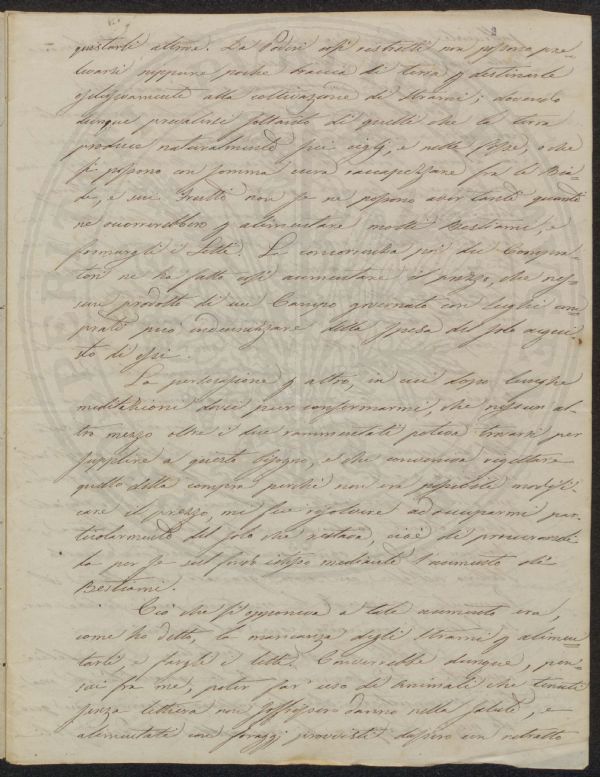 2
quistarli altrove. Da Poderi così ristretti non possono pre-
levarsi neppure poche braccia di terra p destinarle
esclusivamente alla coltivazione di Strami; dovendo
dunque prevalersi soltanto di quelli che la terra
produce naturalmente pei cigli, e nelle fosse, o che
si possono in somma raccapezzare fra le Bia-
de, e sui Frutti non se ne possono aver tanti quanti
ne occorrerebbero p alimentare molti Bestiami, e
formargli i Letti. La concorrenza poi dei Compra-
tori ne ha fatto così aumentare il prezzo, che nes-
sun prodotto di un Campo governato con Sughi com-
prati può indennizzare della spesa del solo acqui-
sto di essi.
La persuasione p altro, in cui dopo lunghe
meditazioni dovei pur confermarmi, che nessun al-
tro mezzo oltre i due rammentati poteva trovarsi per
supplire a questo bisogno, e che conveniva rigettare
quello della compra perchè non era possibile modifi-
care il prezzo, mi fece risolvere ad occuparmi par-
ticolarmente del solo che restava, cioè di procurarme-
lo per se sul fondo istesso mediante l'aumento di
Bestiami.
Ciò che si opponeva a tale aumento era,
come ho detto, la mancanza degli Strami p alimen-
tarli, e fargli i letti. Converrebbe dunque, pen-
sai fra me, poter far uso di Animali che tenuti
senza lettiera non soffrissero danno nella salute, e
alimentati con foraggi provvisti dassero un ritratto